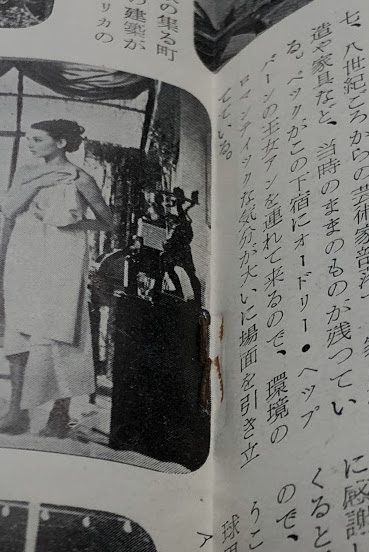 七、八世紀ごろからの芸術家部落
造や家具など、当時のままのものが残つてい
る。ペックがこの下宿にオードリー・ヘップ
バーンの王女アンを連れて来るので、環境の
ロマンティックな気分が大いに場面を引き立
てている。
に感謝し
くると
ので、
りこ
の集る町
の建築が
リカの